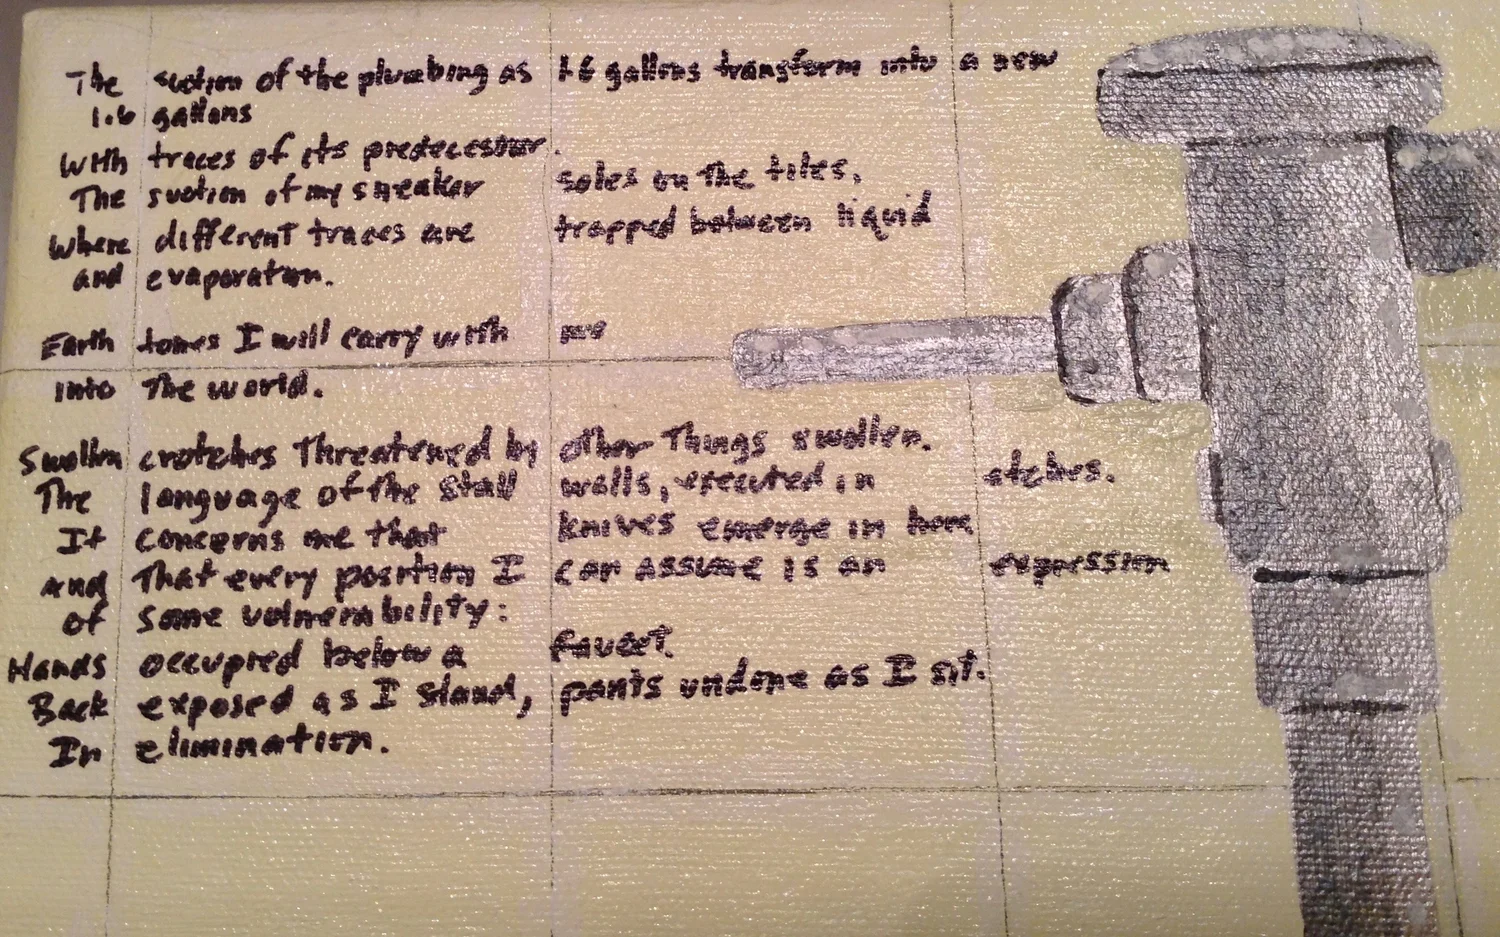 The suction of the plumbing as 1.6 gallons transform into a new
1.6 gallons
With traces of its predecessor.
The suction of my sneaker soles on the tiles,
Where different traces are trapped between liquid
and evaporation.
Earth tones I will carry with me
into the world.
Swollen crotches threatened by other things swollen.
The language of the stall walls, executed in etches.
It concerns me that knives emerge in here
and that every position I can assume is an expression
of some vulnerability:
Hands occupied below a faucet.
Back exposed as I stand, pants undone as I sit.
In elimination.